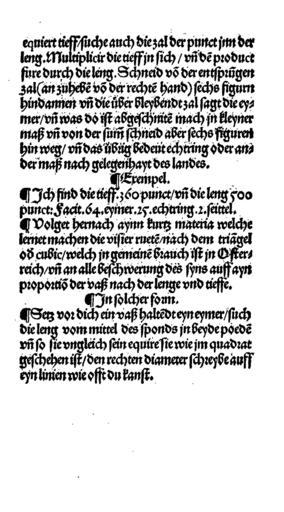 equiert tieff/suche auch die zal der punct jnn der
leng. Multiplicir die tieff in sich / vñ dē product
fure durch die leng. Schneid vō der entsprūgen
zal (an zuhebē vō der rechtē hand) sechs figurn
hindannen vñ die über bleybendt zal sagt die ey-
mer/vñ was do ist abgeschnitē mach in kleyner
maß vñ von der sum̄ schneid aber sechs figuren
hin weg/ vñ das übrig bedeut echtring oder an-
der maß nach gelegenhayt des landes.
¶ Exempel.
¶ Ich find die tieff. 360 punct/vñ die leng 500
punct: Facit. 64. eymer. 25. echtring. 2. seittel.
¶ Volget hernach aynn kurtz materia welche
lernet machen die visier ruetē/nach dem triāgel
od cubic/welch jn gemeinē brauch ist jn Oster-
reich/vñ an alle beschwerung des syns auff ayn
proportiō der vaß nach der lenge vnd tieffe.
¶ Jn solcher form.
¶ Setz vor dich ein vaß haltēdt eyn eymer/such
die leng vom mittel des sponds jn beyde poedē
vñ so sie vngleich sein equire sie wie jm quadrat
geschehen ist/den rechten diameter schreybe auff
eyn linien wie offt du kanst.